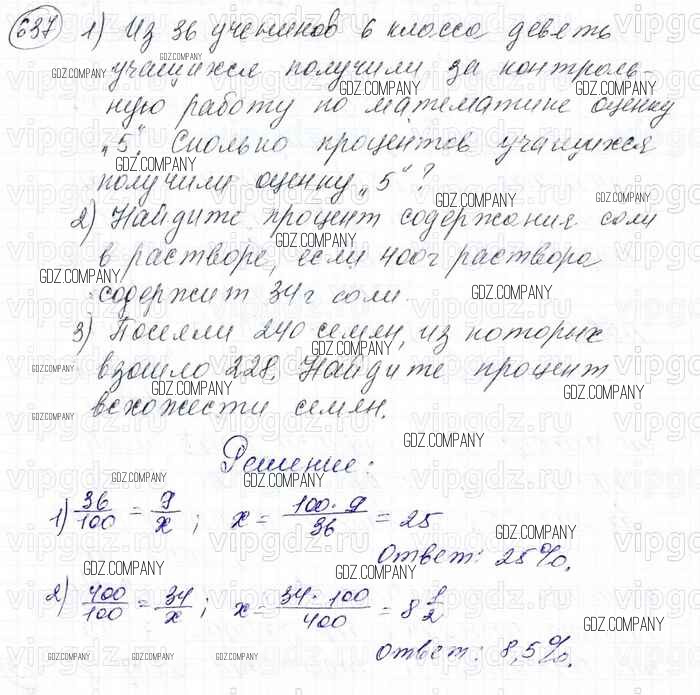 637 1) Из 36 учеников 6 класса девять
учащихся получили за контроль-
ную работу по математике оценку
„5". Сколько процентов учащихся
получили оценку „5"?
2) Найдите процент содержания соли
в растворе, если 400г раствора
содержит 34 г соли.
3) Посеяли 240 семян, из которых
взошло 228. Найдите процент
всхожести семян.
Решение:
1) 36/100 = 9/x ; x = 100·9/36 = 25
Ответ: 25%.
2) 400/100 = 34/x ; x = 34·100/400 = 8 1/2
Ответ: 8,5%.